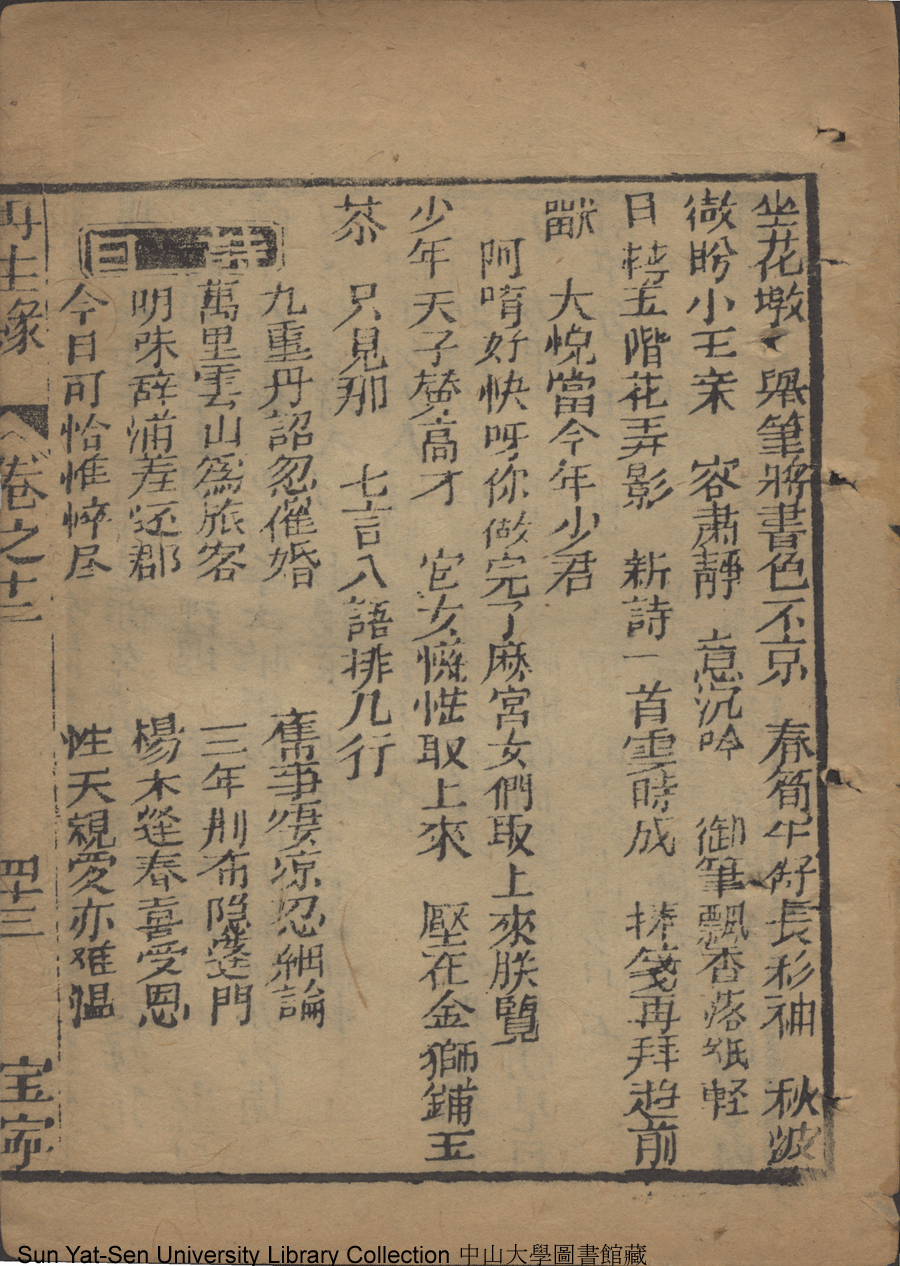 坐花墩 舉筆將書色不京 春筍半舒長彩袖 秋波
微盼小王來 容肅靜 意沉吟 御筆飄香落紙軽
日轉玉階花弄影 新詩一首霎時成 捧箋再拜趋前
獻 大悅當今年少君
阿唷好快呀你做完了麽宮女們取上來朕覽
少年天子贊高才 宫女慌忙取上來 壓在金獅鋪玉
茶 只見那 七言八語排几行
詩曰
九重丹詔忽催婚 舊事凄凉忍細論
萬里雲山爲旅客 三年荆布隐蓬門
明珠辞浦羞还郡 楊木逢春喜受恩
今日可怡惟悴尽 性天親爱亦难温
再生緣 卷之十二 四十三 宝寧
Sun Yat-Sen University Library Collection 中山大學圖書館藏